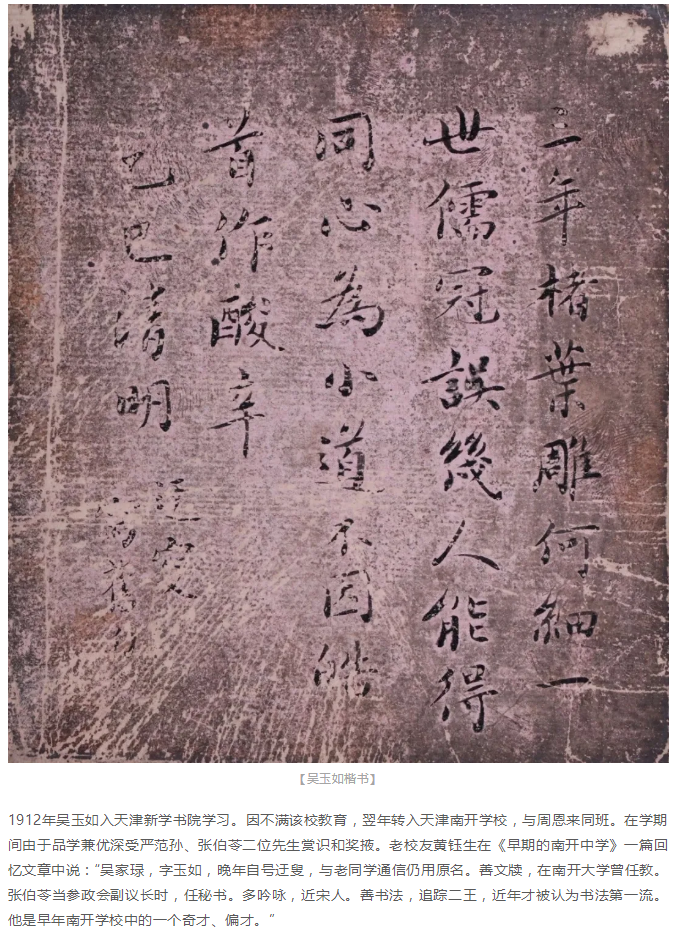 三年楮葉雕何細一
世儒冠誤幾人能得
同心為小道不因皓
首作酸辛
乙巳清明
迂叟
舊作
【吴玉如楷书】
1912年吴玉如入天津新学书院学习。因不满该校教育，翌年转入天津南开学校，与周恩来同班。在学期
间由于品学兼优深受严范孙、张伯苓二位先生赏识和奖掖。老校友黄钰生在《早期的南开中学》一篇回
忆文章中说：“吴家琭，字玉如，晚年自号迂叟，与老同学通信仍用原名。善文牍，在南开大学曾任教。
张伯苓当参政会副议长时，任秘书。多吟咏，近宋人。善书法，追踪二王，近年才被认为书法第一流。
他是早年南开学校中的一个奇才、偏才。”